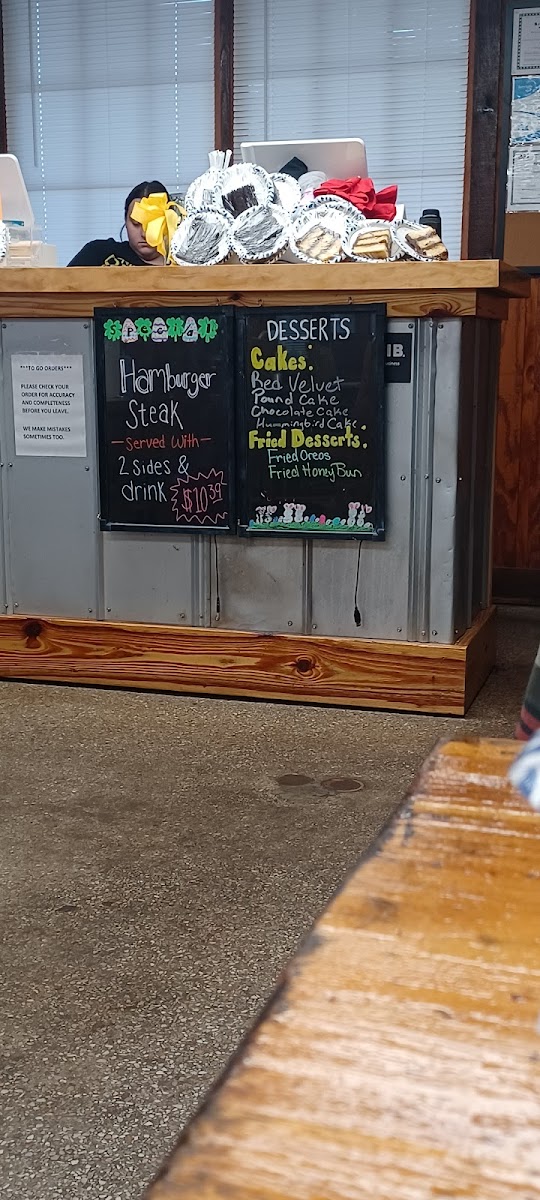 ***TO GO ORDERS***
PLEASE CHECK YOUR
ORDER FOR ACCURACY
AND COMPLETENESS
BEFORE YOU LEAVE.
WE MAKE MISTAKES
SOMETIMES TOO.
Hamburger
Steak
-Served With-
2 sides &
drink $10.39
DESSERTS
Cakes:
Red Velvet
Pound Cake
Chocolate Cake
Hummingbird Cake
Fried Desserts:
Fried Oreos
Fried Honey Bun
IB.